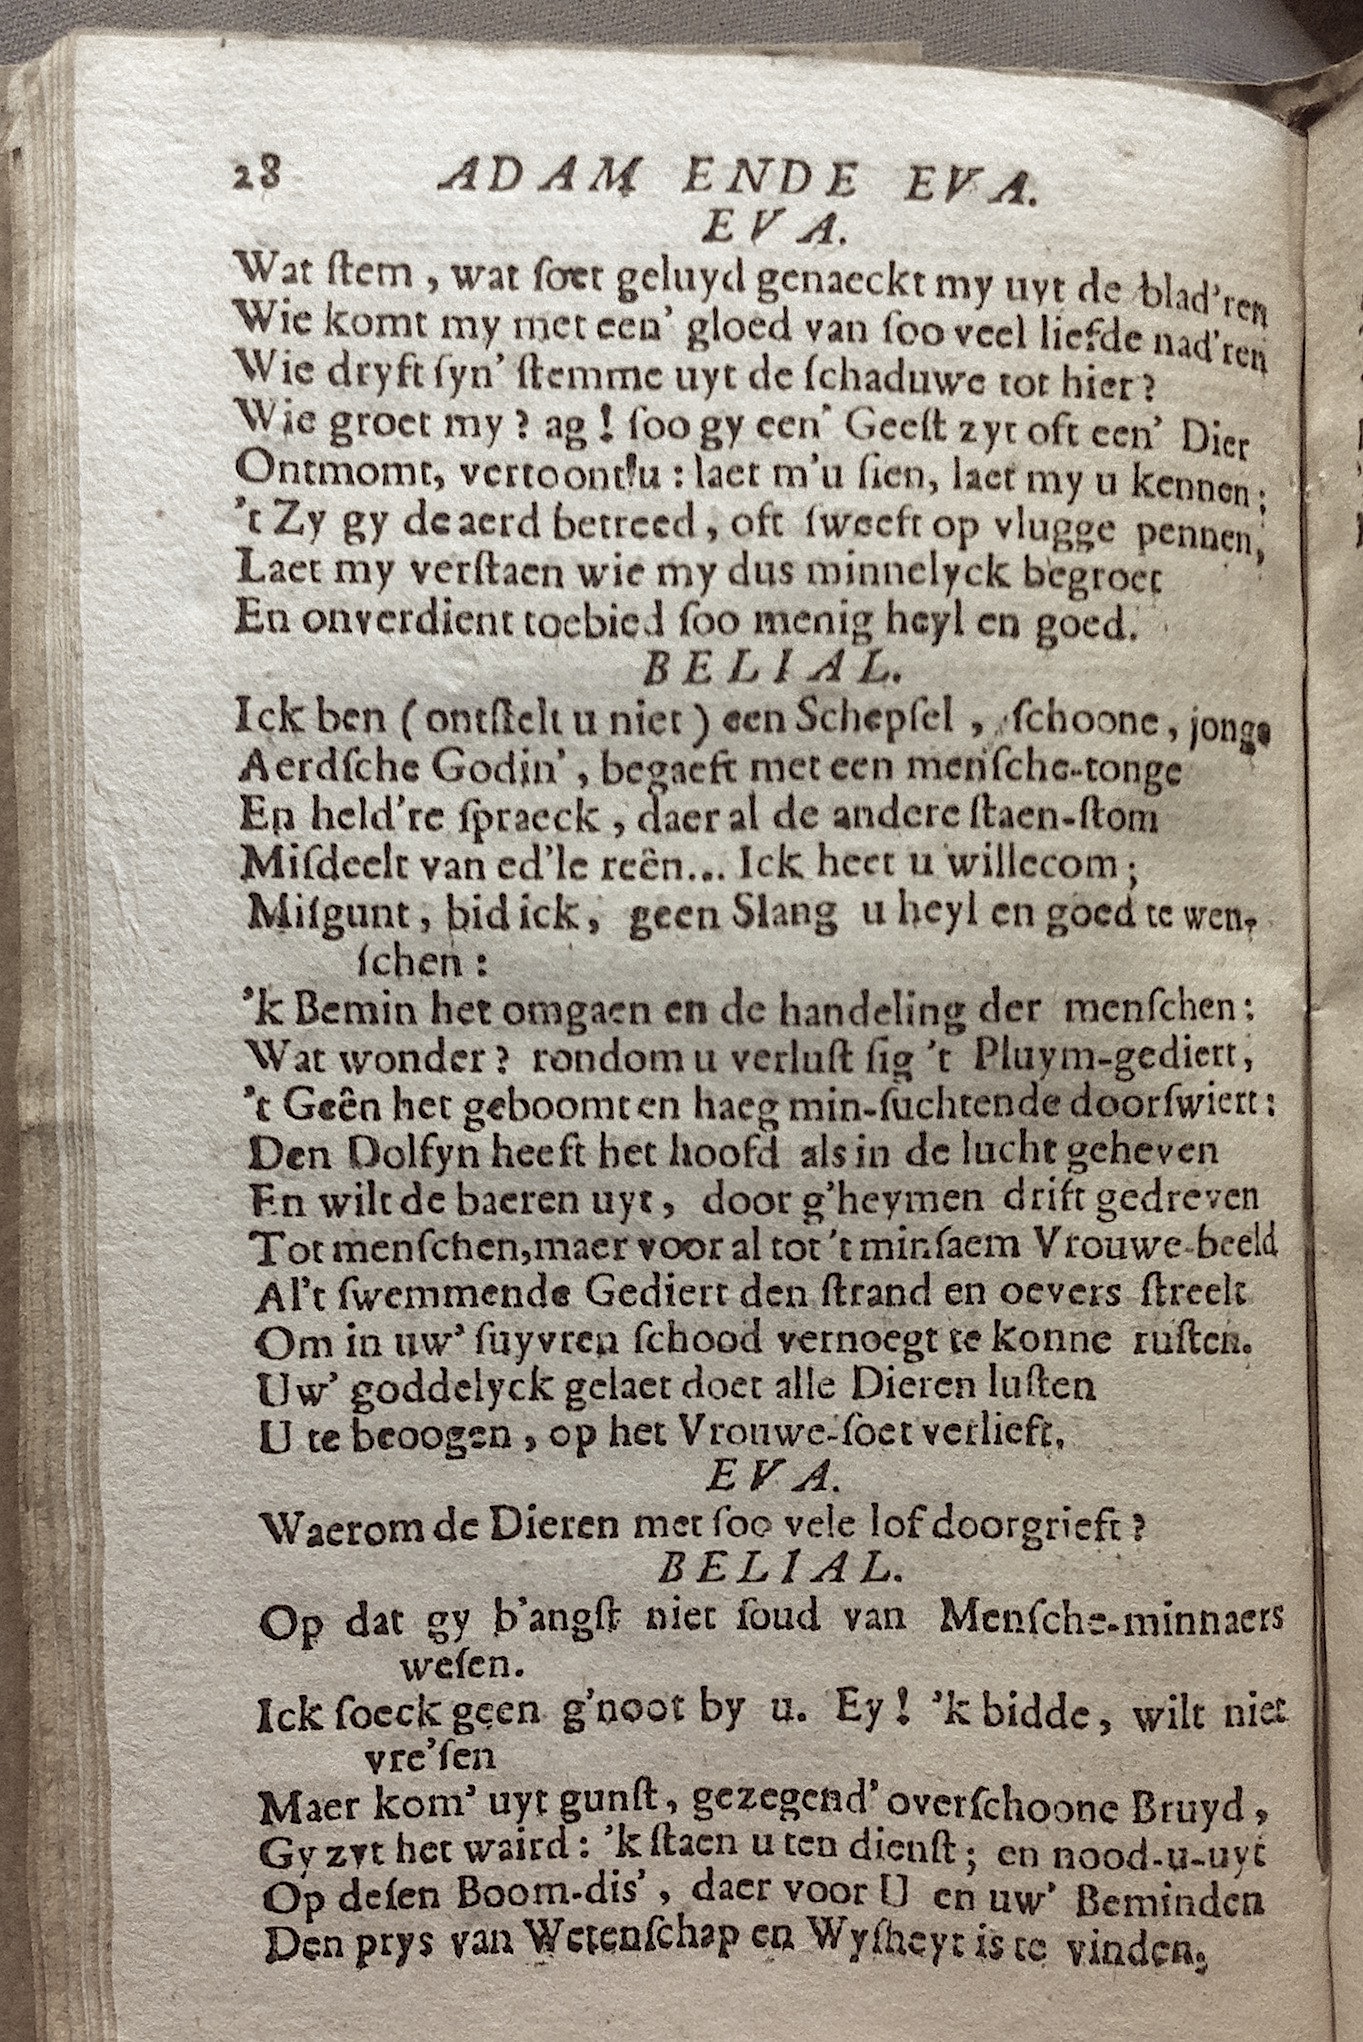 28 ADAM ENDE EVA.
EVA.
Wat ſtem, wat ſoet geluyd genaeckt my uyt de blad'ren
Wie komt my met een' gloed van ſoo veel liefde nad'ren
Wie dryft ſyn' ſtemme uyt de ſchaduwe tot hier?
Wie groet my? ag! ſoo gy een' Geeſt zyt oft een' Dier
Ontmomt, vertoont u: laet m'u ſien, laet my u kennen;
't Zy gy de aerd betreed, oft ſweeft op vlugge pennen,
Laet my verſtaen wie my dus minnelyck begroet
En onverdient toebied ſoo menig heyl en goed.
BELIAL.
Ick ben (ontſtelt u niet) een Schepſel, ſchoone, jonge
Aerdſche Godin', begaeft met een menſche-tonge
En held're ſpraeck, daer al de andere ſtaen-ſtom
Miſdeelt van ed'le reên... Ick heet u willecom;
Miſgunt, bid ick, geen Slang u heyl en goed te wen-
ſchen:
'k Bemin het omgaen en de handeling der menſchen:
Wat wonder? rondom u verluſt ſig 't Pluym-gediert,
't Geên het geboomt en haeg min-ſuchtende doorſwiert:
Den Dolfyn heeft het hoofd als in de lucht geheven
En wilt de baeren uyt, door g'heymen drift gedreven
Tot menſchen, maer voor al tot 't minſaem Vrouwe-beeld
Al't ſwemmende Gediert den ſtrand en oevers ſtreelt
Om in uw' ſuyvren ſchood vernoegt te konne ruſten.
Uw' goddelyck gelaet doet alle Dieren luſten
U te beoogen, op het Vrouwe-ſoet verlieft.
EVA.
Waerom de Dieren met ſoo vele lof doorgrieft?
BELIAL.
Op dat gy b'angſt niet ſoud van Menſche-minnaers
weſen.
Ick ſoeck geen g'noot by u. Ey! 'k bidde, wilt niet
vre'ſen
Maer kom' uyt gunſt, gezegend' overſchoone Bruyd,
Gy zyt het waird: 'k ſtaen u ten dienſt; en nood-u-uyt
Op deſen Boom-dis', daer voor U en uw' Beminden
Den prys van Wetenſchap en Wyſheyt is te vinden.